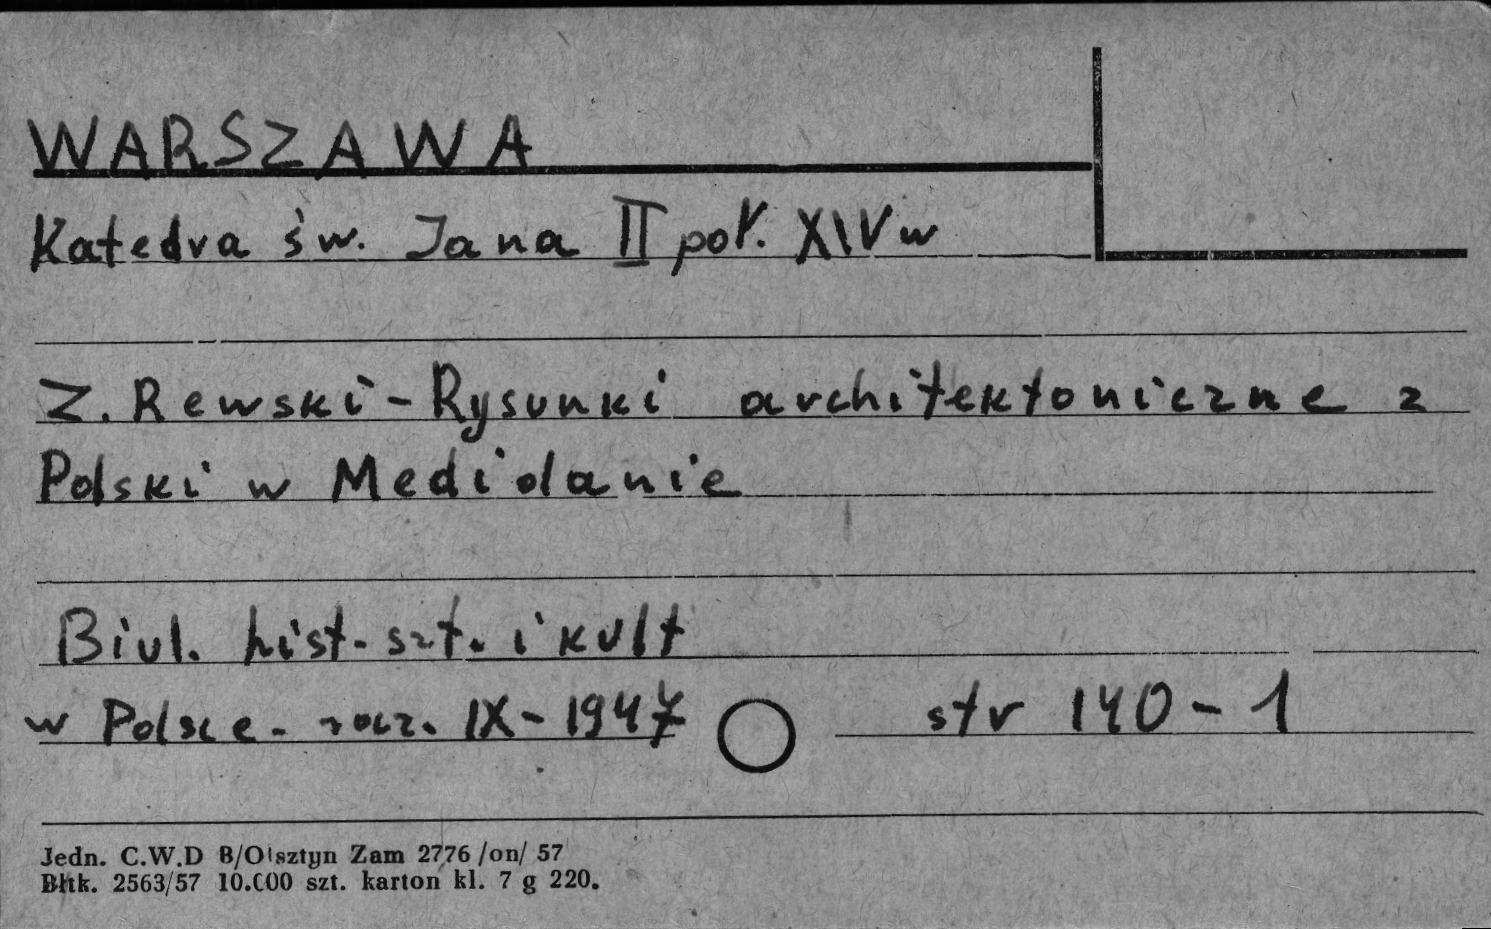 WARSZAWA
Katedra św. Jana II poł. XIV w
Z. Rewski - Rysunki architektoniczne z
Polski w Mediolanie
Biul. hist. szt. i kult
w Polsce - rocz. IX - 1947 str 140-1
Jedn. C.W.D B/Olsztyn Zam 2776 /on/ 57
Bltk. 2563/57 10.000 szt. karton kl. 7 g 220.